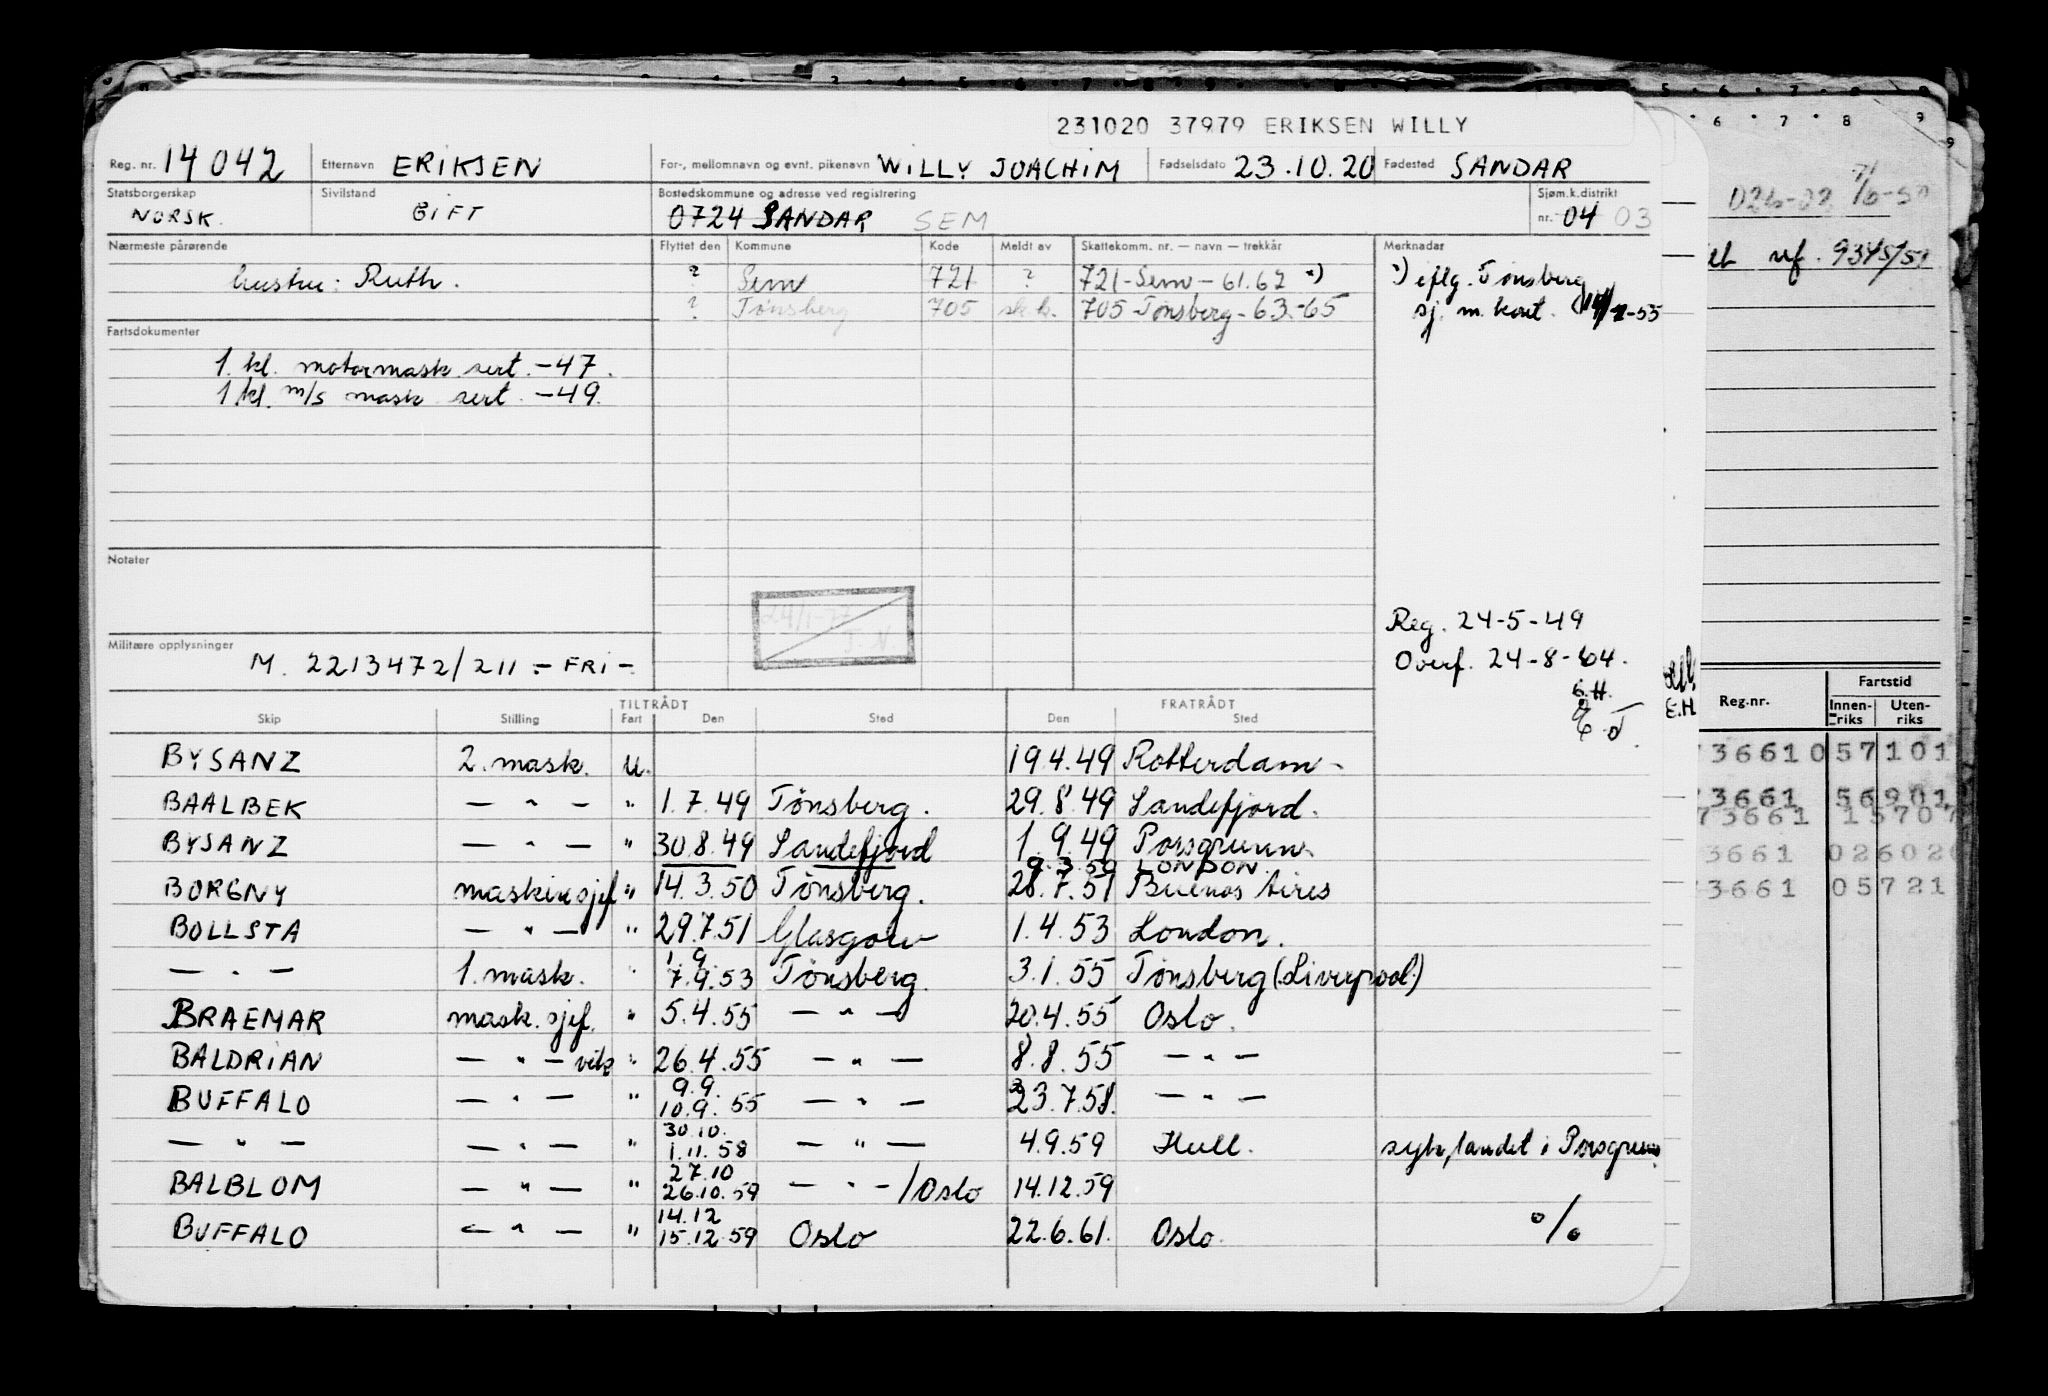 231020 37979 ERIKSEN WILLY
Reg. nr. 14042 Etternavn ERIKSEN For-, mellomnavn og evnt. pikenavn WILLY JOACHIM Fødselsdato 23.10.20 Fødested SANDAR
Statsborgerskap NORSK. Sivilstand GIFT Bostedskommune og adresse ved registrering 0724 SANDAR SEM Sjøm.k.distrikt nr. 04 03
Nærmeste pårørende Flyttet den Kommune Kode Meldt av Skattekomm. nr. — navn — trekkår Merknadar
hustru: Ruth. ? Sem 721 ? 721-Sem-61.62 *) *) eflg. Tønsberg
? Tønsberg 705 sk.k. 705 Tønsberg-63-65 sj. m. kort.
Fartsdokumenter
1. kl. motormask. sert. -47.
1 kl. m/s mask sert. -49.
Notater
Reg. 24-5-49
Militære opplysninger M. 2213472/211 - FRI - Overf. 24-8-64.
E.H.
TILTRÅDT FRATRÅDT
Skip Stilling Fart Den Sted Den Sted
BYSANZ 2. mask. u. 19.4.49 Rotterdam -
BAALBEK — " — " 1.7.49 Tønsberg. 29.8.49 Sandefjord.
BYSANZ — " — " 30.8.49 Sandefjord 1.9.49 Porsgrunn.
9.3.50 LONDON.
BORGNY maskinsjef " 14.3.50 Tønsberg. 28.7.51 Buenos Aires
BOLLSTA — " — " 29.7.51 Glasgow 1.4.53 London.
1.9.
— " — 1. mask. " 7.9.53 Tønsberg. 3.1.55 Tønsberg (Liverpool)
BRAEMAR mask.sjef. " 5.4.55 — " — 20.4.55 Oslo.
BALDRIAN — " — vik " 26.4.55 — " — 8.8.55 — " —
9.9.
BUFFALO — " — " 10.9.55 — " — 23.7.58. — " —
30.10.
— " — — " — " 1.11.58 — " — 4.9.59 Hull. syk, landet i Porsgrunn
27.10
BALBLOM — " — " 26.10.59 — " — / Oslo 14.12.59
14.12
BUFFALO — " — " 15.12.59 Oslo 22.6.61. Oslo. o/o
6 7 8 9
nf. 9345/50
Reg.nr. Fartstid
Innen-riks Uten-riks
736610 57101
3661 56901
73661 15707
3661 02602
3661 05721
E.H